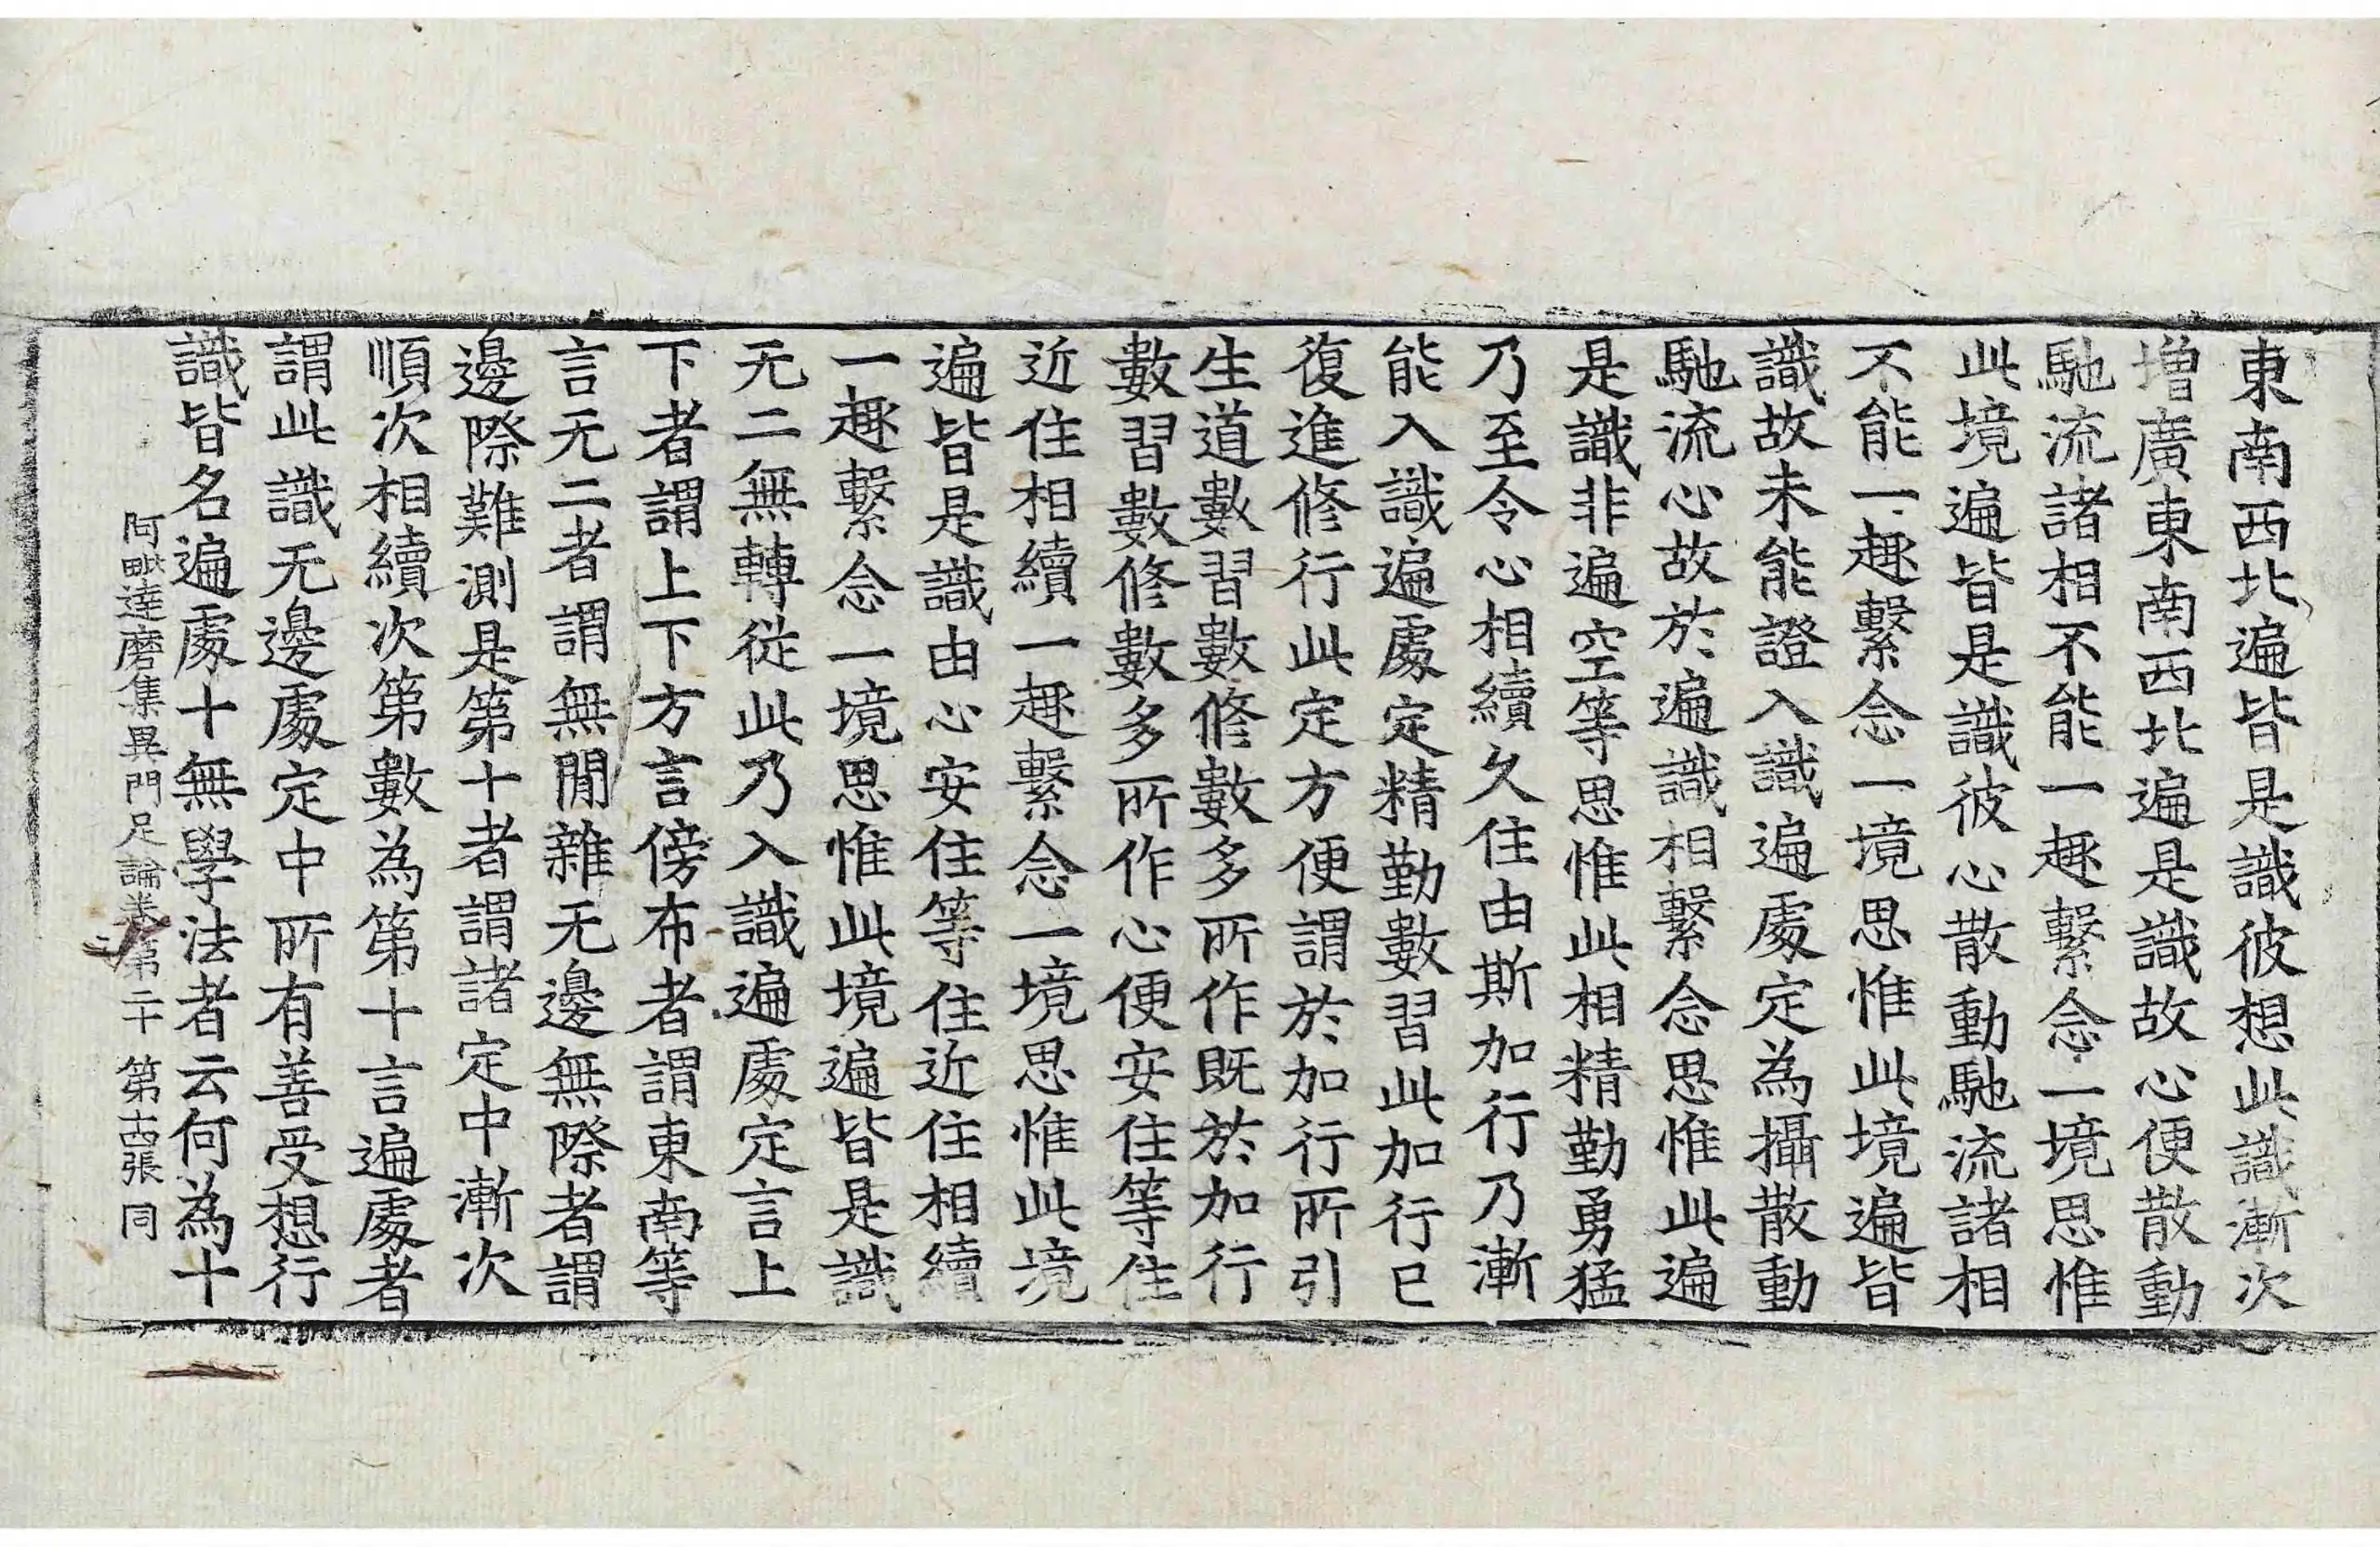 東南西北遍皆是識彼想此識漸次
增廣東南西北遍是識故心便散動
馳流諸相不能一趣繫念一境思惟
此境遍皆是識彼心散動馳流諸相
不能一趣繫念一境思惟此境遍皆
識故未能證入識遍處定為攝散動
馳流心故於遍識相繫念思惟此遍
是識非遍空等思惟此相精勤勇猛
乃至令心相續久住由斯加行乃漸
能入識遍處定精勤數習此加行已
復進修行此定方便謂於加行所引
生道數習數修數多所作既於加行
數習數修數多所作心便安住等住
近住相續一趣繫念一境思惟此境
遍皆是識由心安住等住近住相續
一趣繫念一境思惟此境遍皆是識
无二無轉從此乃入識遍處定言上
下者謂上下方言傍布者謂東南等
言无二者謂無閒雜无邊無際者謂
邊際難測是第十者謂諸定中漸次
順次相續次第數為第十言遍處者
謂此識无邊處定中所有善受想行
識皆名遍處十無學法者云何為十
阿毗達磨集異門足論卷第二十 第十四張 同